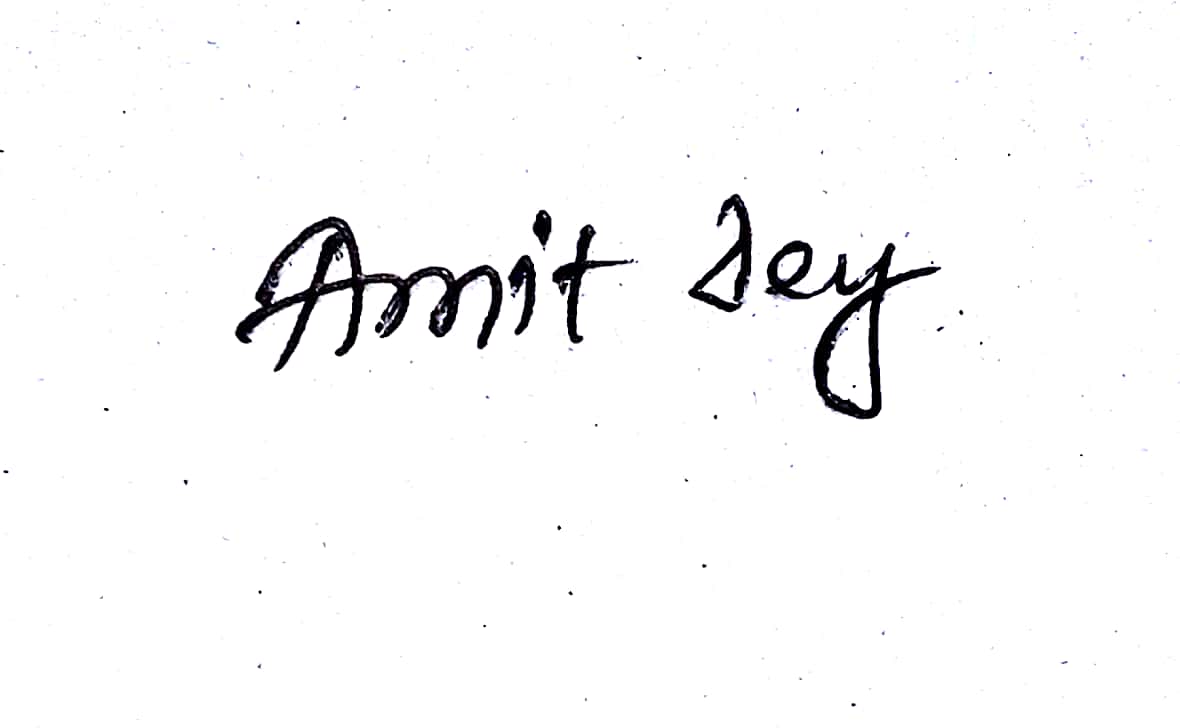 Amit Dey